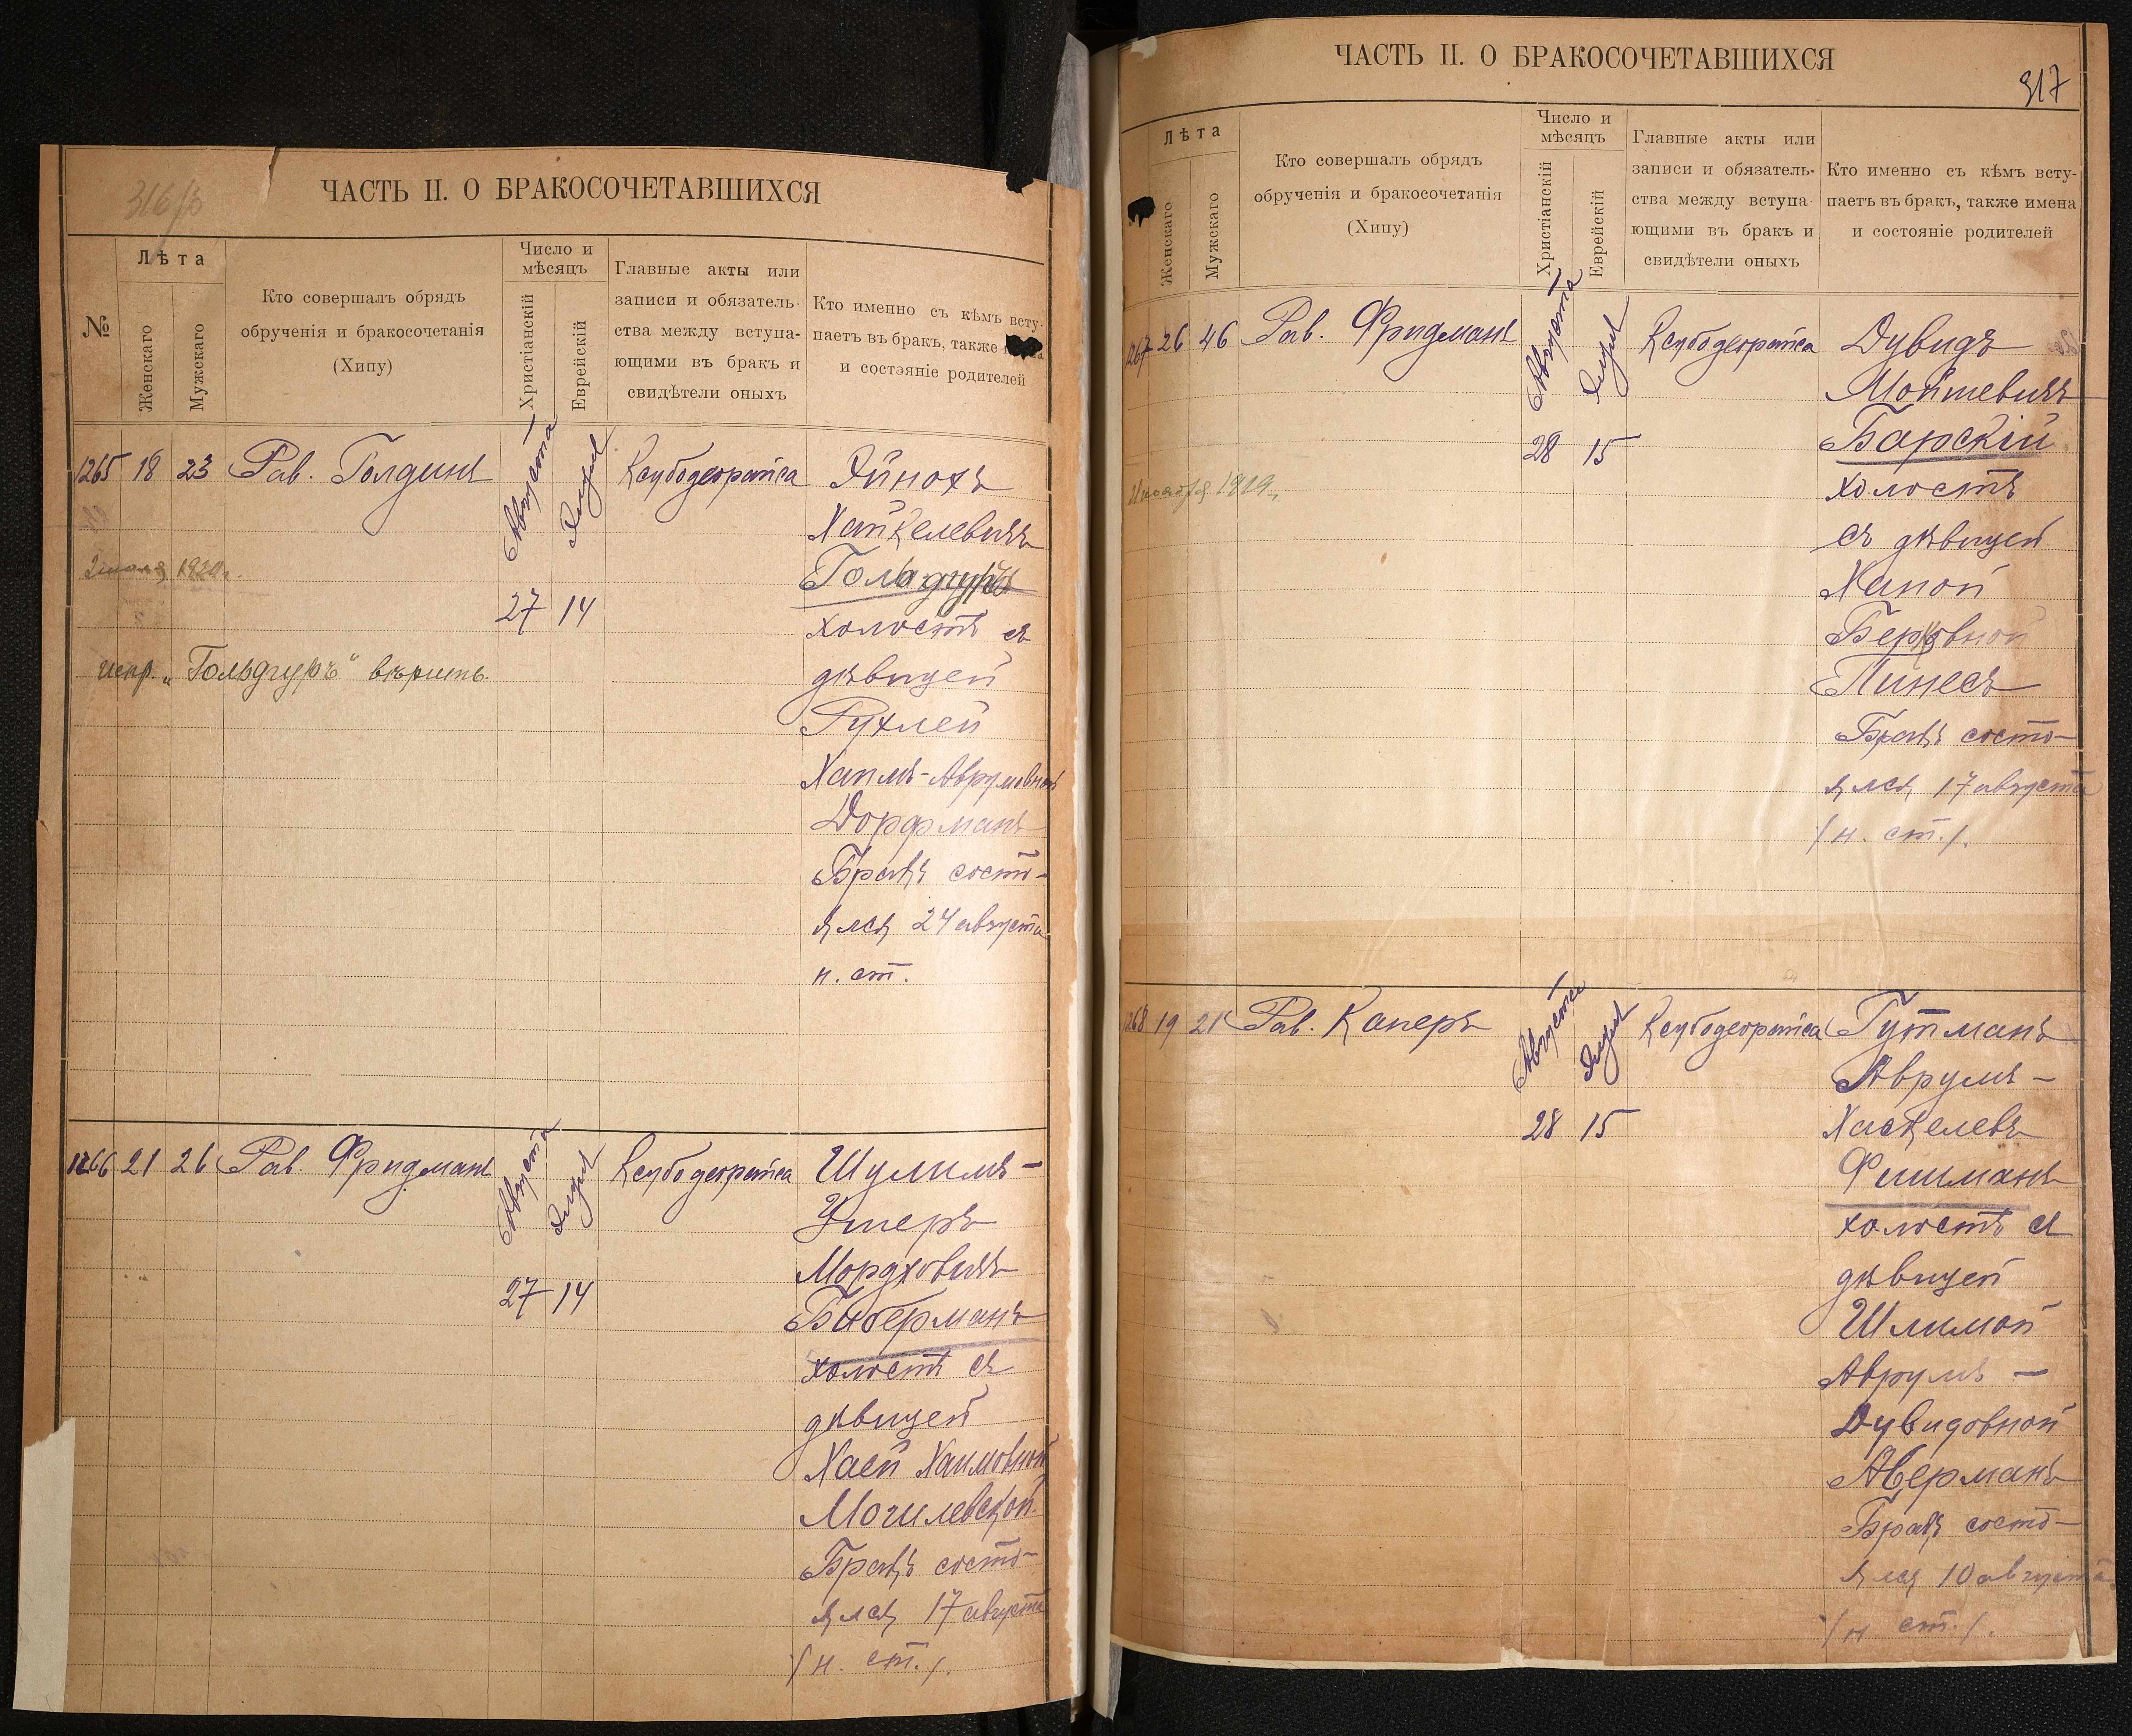 316 об
ЧАСТЬ II. О БРАКОСОЧЕТАВШИХСЯ
№
Лѣта
Женскаго
Мужскаго
Кто совершалъ обрядъ
обрученія и бракосочетанія
(Хипу)
Число и
мѣсяцъ
Христіанскій
Еврейскій
Главные акты или
записи и обязатель-
ства между вступа-
ющими въ бракъ и
свидѣтели оныхъ
Кто именно съ кѣмъ всту-
паетъ въ бракъ, также
и состояніе родителей
1265 18 23 Рав. Голдинъ
Августа
Элулъ
27 14
Ксубодеорайса
Эйнохъ
Хайкелевичъ
Гольдгуръ
холостъ съ
дѣвицей
Рухлей
Хаимъ-Аврумовной
Дорфманъ
Бракъ состо-
ялся 24 августа
н. ст.
1920г.
испр. „Гольдгуръ" вѣрить.
1266 21 26 Рав. Фридманъ
Августа
Элулъ
27 14
Ксубодеорайса
Шулимъ-
Ушеръ
Мордховичъ
Биберманъ
холостъ съ
дѣвицей
Хаей Хаимовной
Могилевской.
Бракъ состо-
ялся 17 августа
/н. ст./.
ЧАСТЬ II. О БРАКОСОЧЕТАВШИХСЯ
317
Лѣта
Женскаго
Мужскаго
Кто совершалъ обрядъ
обрученія и бракосочетанія
(Хипу)
Число и
мѣсяцъ
Христіанскій
Еврейскій
Главные акты или
записи и обязатель-
ства между вступа-
ющими въ бракъ и
свидѣтели оныхъ
Кто именно съ кѣмъ всту-
паетъ въ бракъ, также имена
и состояніе родителей
1267 26 46 Рав. Фридманъ
Августа
Элулъ
28 15
Ксубодеорайса
Дувидъ
Мойшевичъ
Барскій
холостъ
съ дѣвицей
Ханой
Берковной
Пинесъ
Бракъ состо-
ялся 17 августа
/н. ст./.
1919г.
1268 19 21 Рав. Каперъ
Августа
Элулъ
28 15
Ксубодеорайса
Гутманъ
Аврумъ-
Хаскелевъ
Фишманъ
холостъ съ
дѣвицей
Шлимой
Аврумъ-
Дувидовной
Аверманъ
Бракъ состо-
ялся 10 августа
/н ст./.